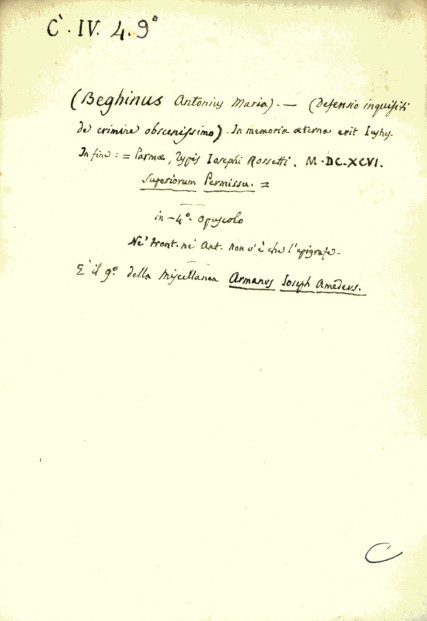 C. IV. 4. 9°
(Beghinus Antonius Maria). — (Defensio inquisiti
de crimine obscenissimo). In memoria æterna erit Iustus.
In fine: = Parmæ, Typis Iosephi Rossetti, M.DC.XCVI.
Superiorum Permissu. =
in-4°. opuscolo
Nè front. nè Aut. non v'è che l'epigrafe.
È il 9°. della Miscellanea Armanus Ioseph Amedeus.
C